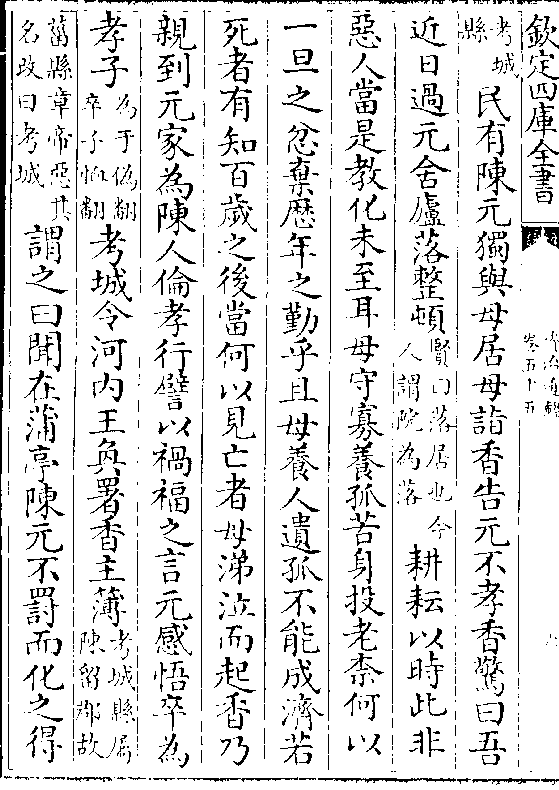 欽定四庫全書
卷五十五
考城縣民有陳元獨與母居母詣香告元不孝香驚曰吾
近日過元舍廬落整頓賢曰落居也今人謂院為落耕耘以時此非
惡人當是教化未至耳母守寡養孤苦身投老柰何以
一旦之忿棄歷年之勤乎且母養人遺孤不能成濟若
死者有知百歲之後當何以見亡者母涕泣而起香乃
親到元家為陳人倫孝行譬以禍福之言元感悟卒為
孝子為于偽翻卒子恤翻考城令河內王奐署香主簿考城縣屬陳留郡故
菑縣章帝惡其名改曰考城謂之曰聞在蒲亭陳元不罰而化之得